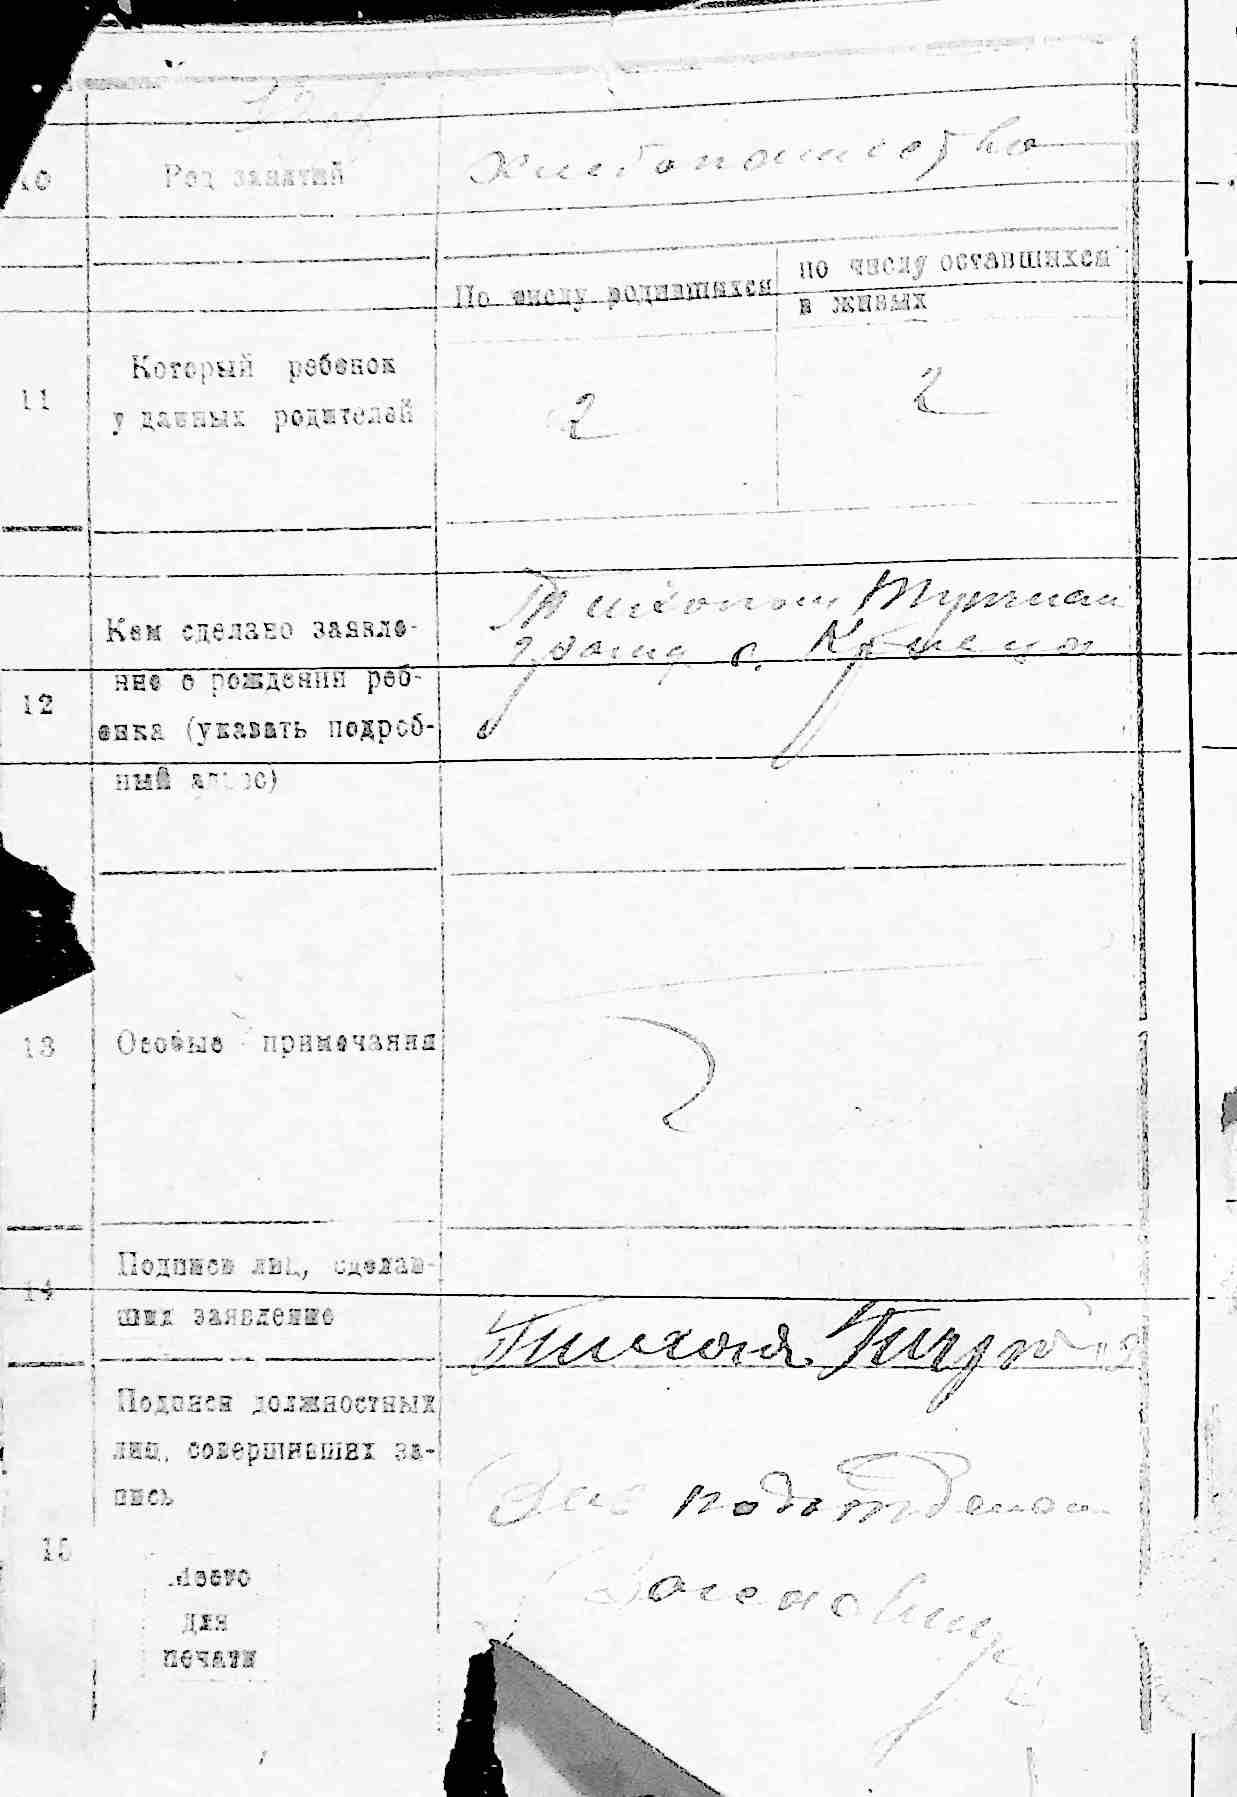 10 Род занятий Хлебопашество
По числу родившихся
по числу оставшихся
в живых
11
Который ребенок
у данных родителей
2 2
12
Кем сделано заявле-
ние о рождении реб-
енка (указать подроб-
ный адрес)
с.
13 Особые примечания
14
Подписи лиц, сделав-
ших заявление
Тихон
15
Подписи должностных
лиц, совершивших за-
пись
Зав подотделом
Место
для
печати